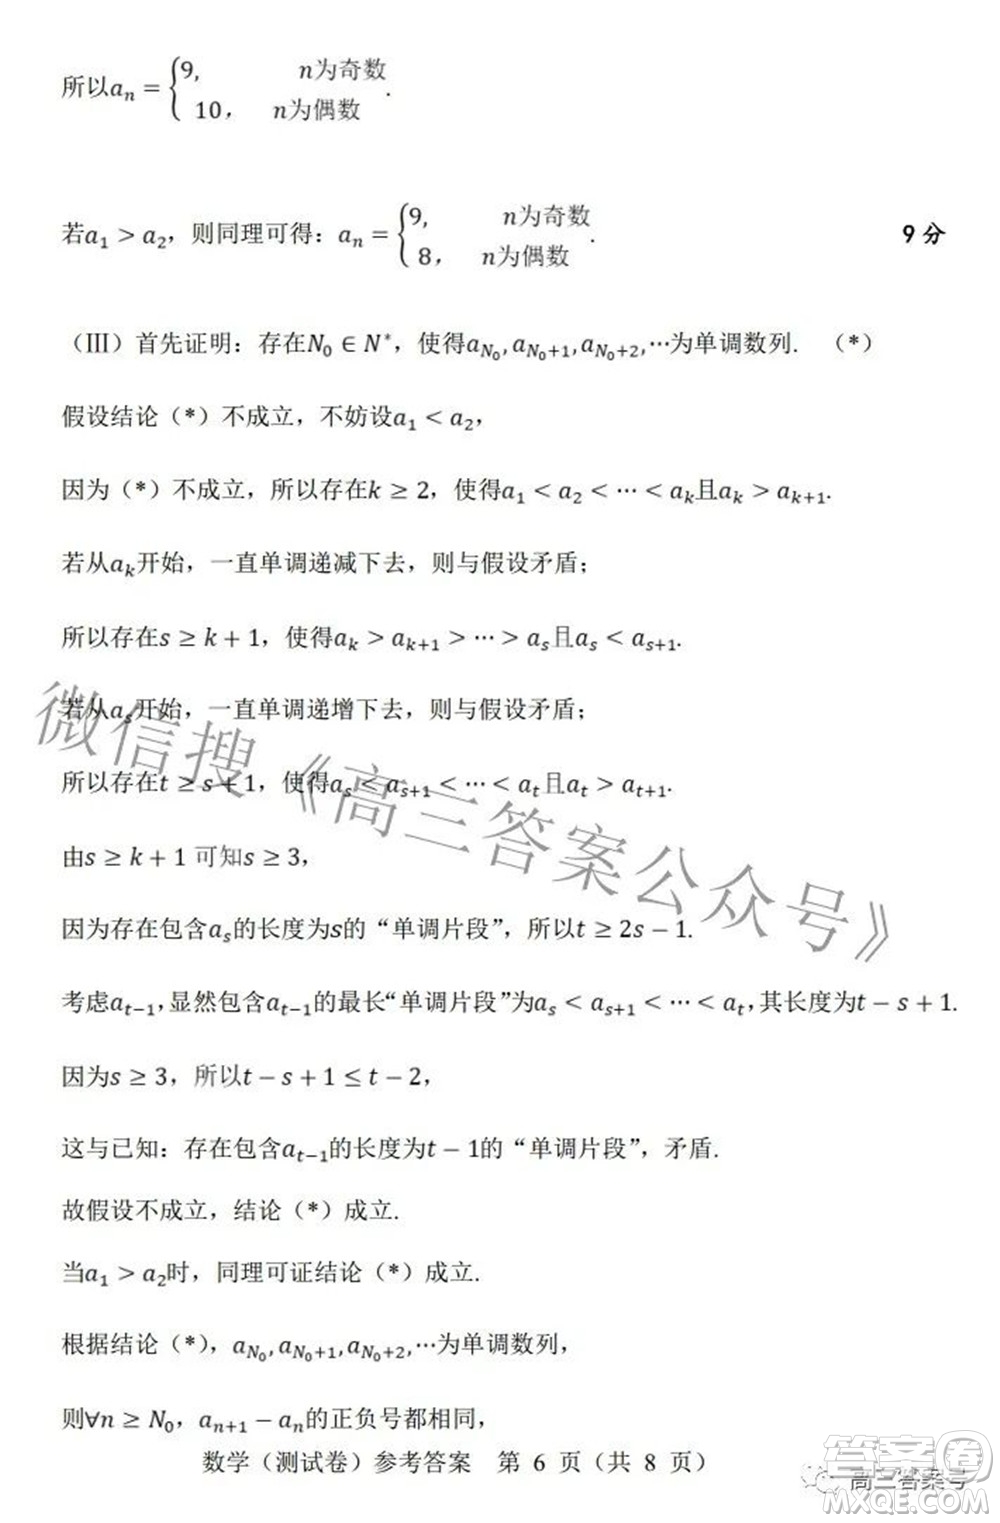 所以aₙ = { 9, n为奇数
10, n为偶数 .
若a₁ > a₂，则同理可得：aₙ = { 9, n为奇数
8, n为偶数 . 9 分
（Ⅲ）首先证明：存在N₀ ∈ N*，使得a_{N₀}, a_{N₀+1}, a_{N₀+2}, ⋯为单调数列. （*）
假设结论（*）不成立，不妨设a₁ < a₂，
因为（*）不成立，所以存在k ≥ 2，使得a₁ < a₂ < ⋯ < a_k且a_k > a_{k+1}.
若从a_k开始，一直单调递减下去，则与假设矛盾；
所以存在s ≥ k + 1，使得a_k > a_{k+1} > ⋯ > a_s且a_s < a_{s+1}.
若从a_s开始，一直单调递增下去，则与假设矛盾；
所以存在t ≥ s + 1，使得a_s < a_{s+1} < ⋯ < a_t且a_t > a_{t+1}.
由s ≥ k + 1 可知s ≥ 3，
因为存在包含a_s的长度为s的“单调片段”，所以t ≥ 2s − 1.
考虑a_{t−1}，显然包含a_{t−1}的最长“单调片段”为a_s < a_{s+1} < ⋯ < a_t，其长度为t − s + 1.
因为s ≥ 3，所以t − s + 1 ≤ t − 2，
这与已知：存在包含a_{t−1}的长度为t − 1的“单调片段”，矛盾.
故假设不成立，结论（*）成立.
当a₁ > a₂时，同理可证结论（*）成立.
根据结论（*），a_{N₀}, a_{N₀+1}, a_{N₀+2}, ⋯为单调数列，
则∀n ≥ N₀，a_{n+1} − aₙ的正负号都相同，
数学（测试卷）参考答案 第 6 页（共 8 页）
微信搜《高三答案公众号》
高三答案号
答案圈
MXQE.COM